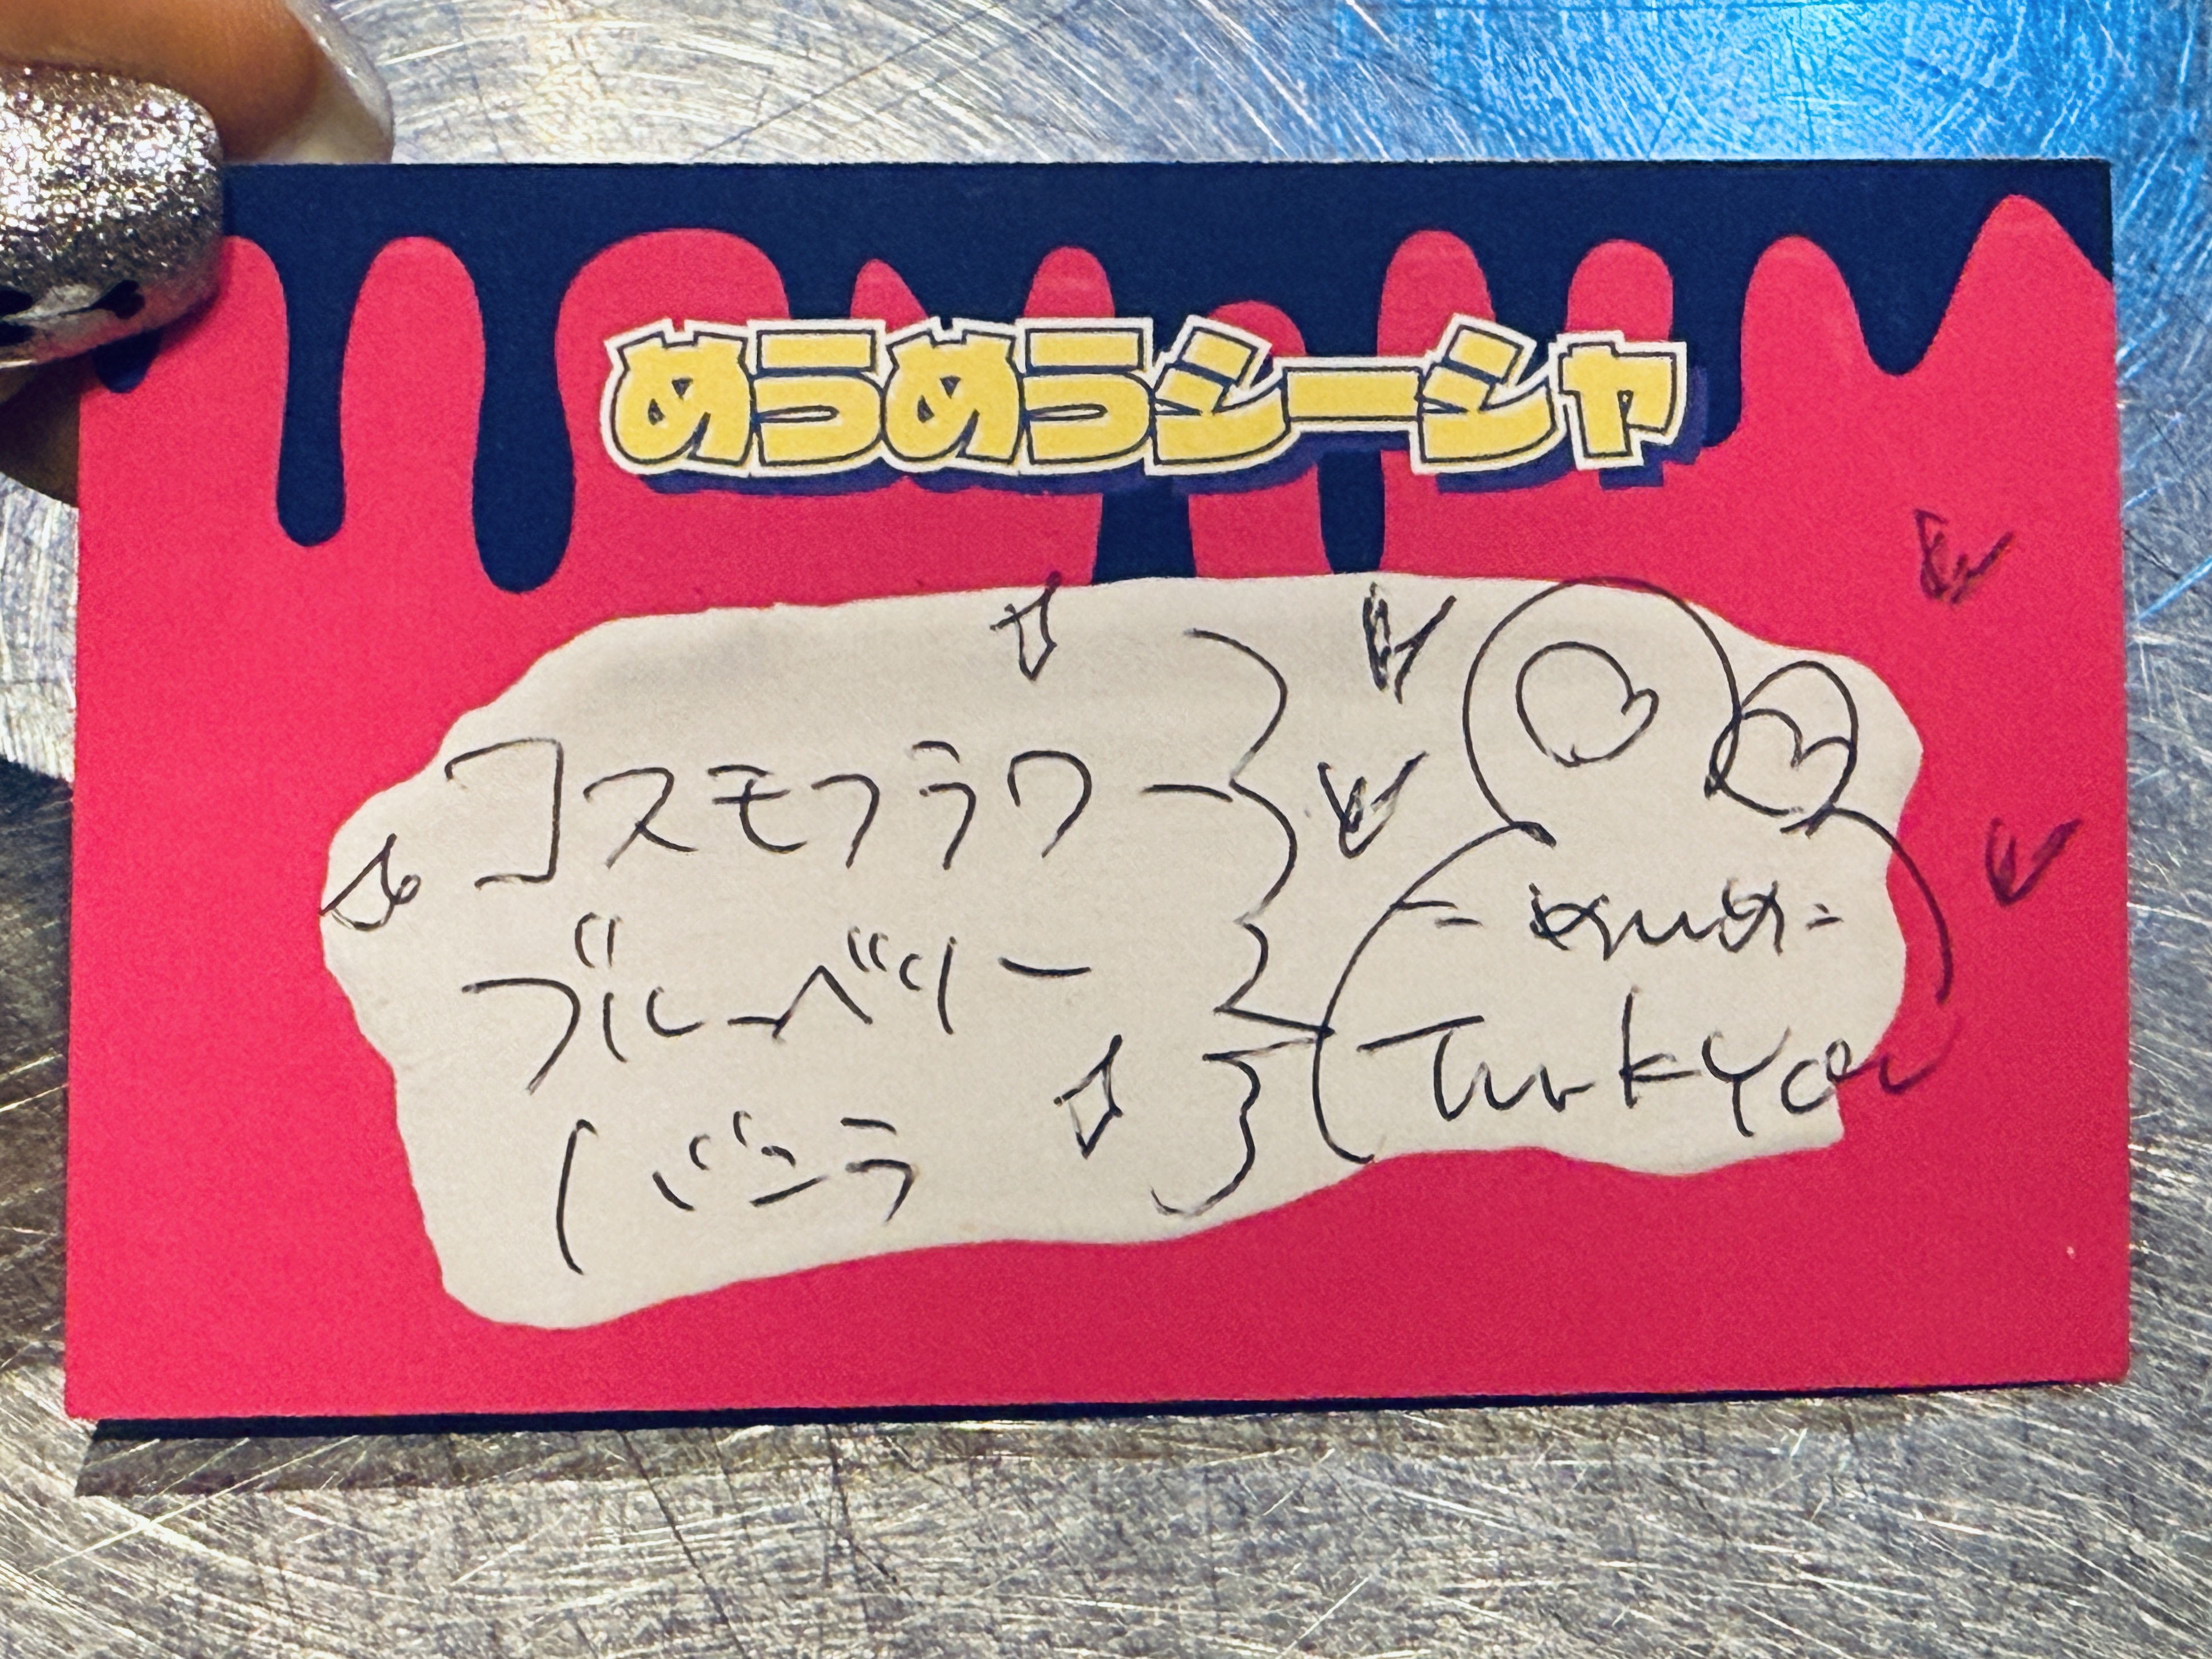 めらめらシーシャ
コスモフラワー
ブルーベリー
バニラ
Thank You